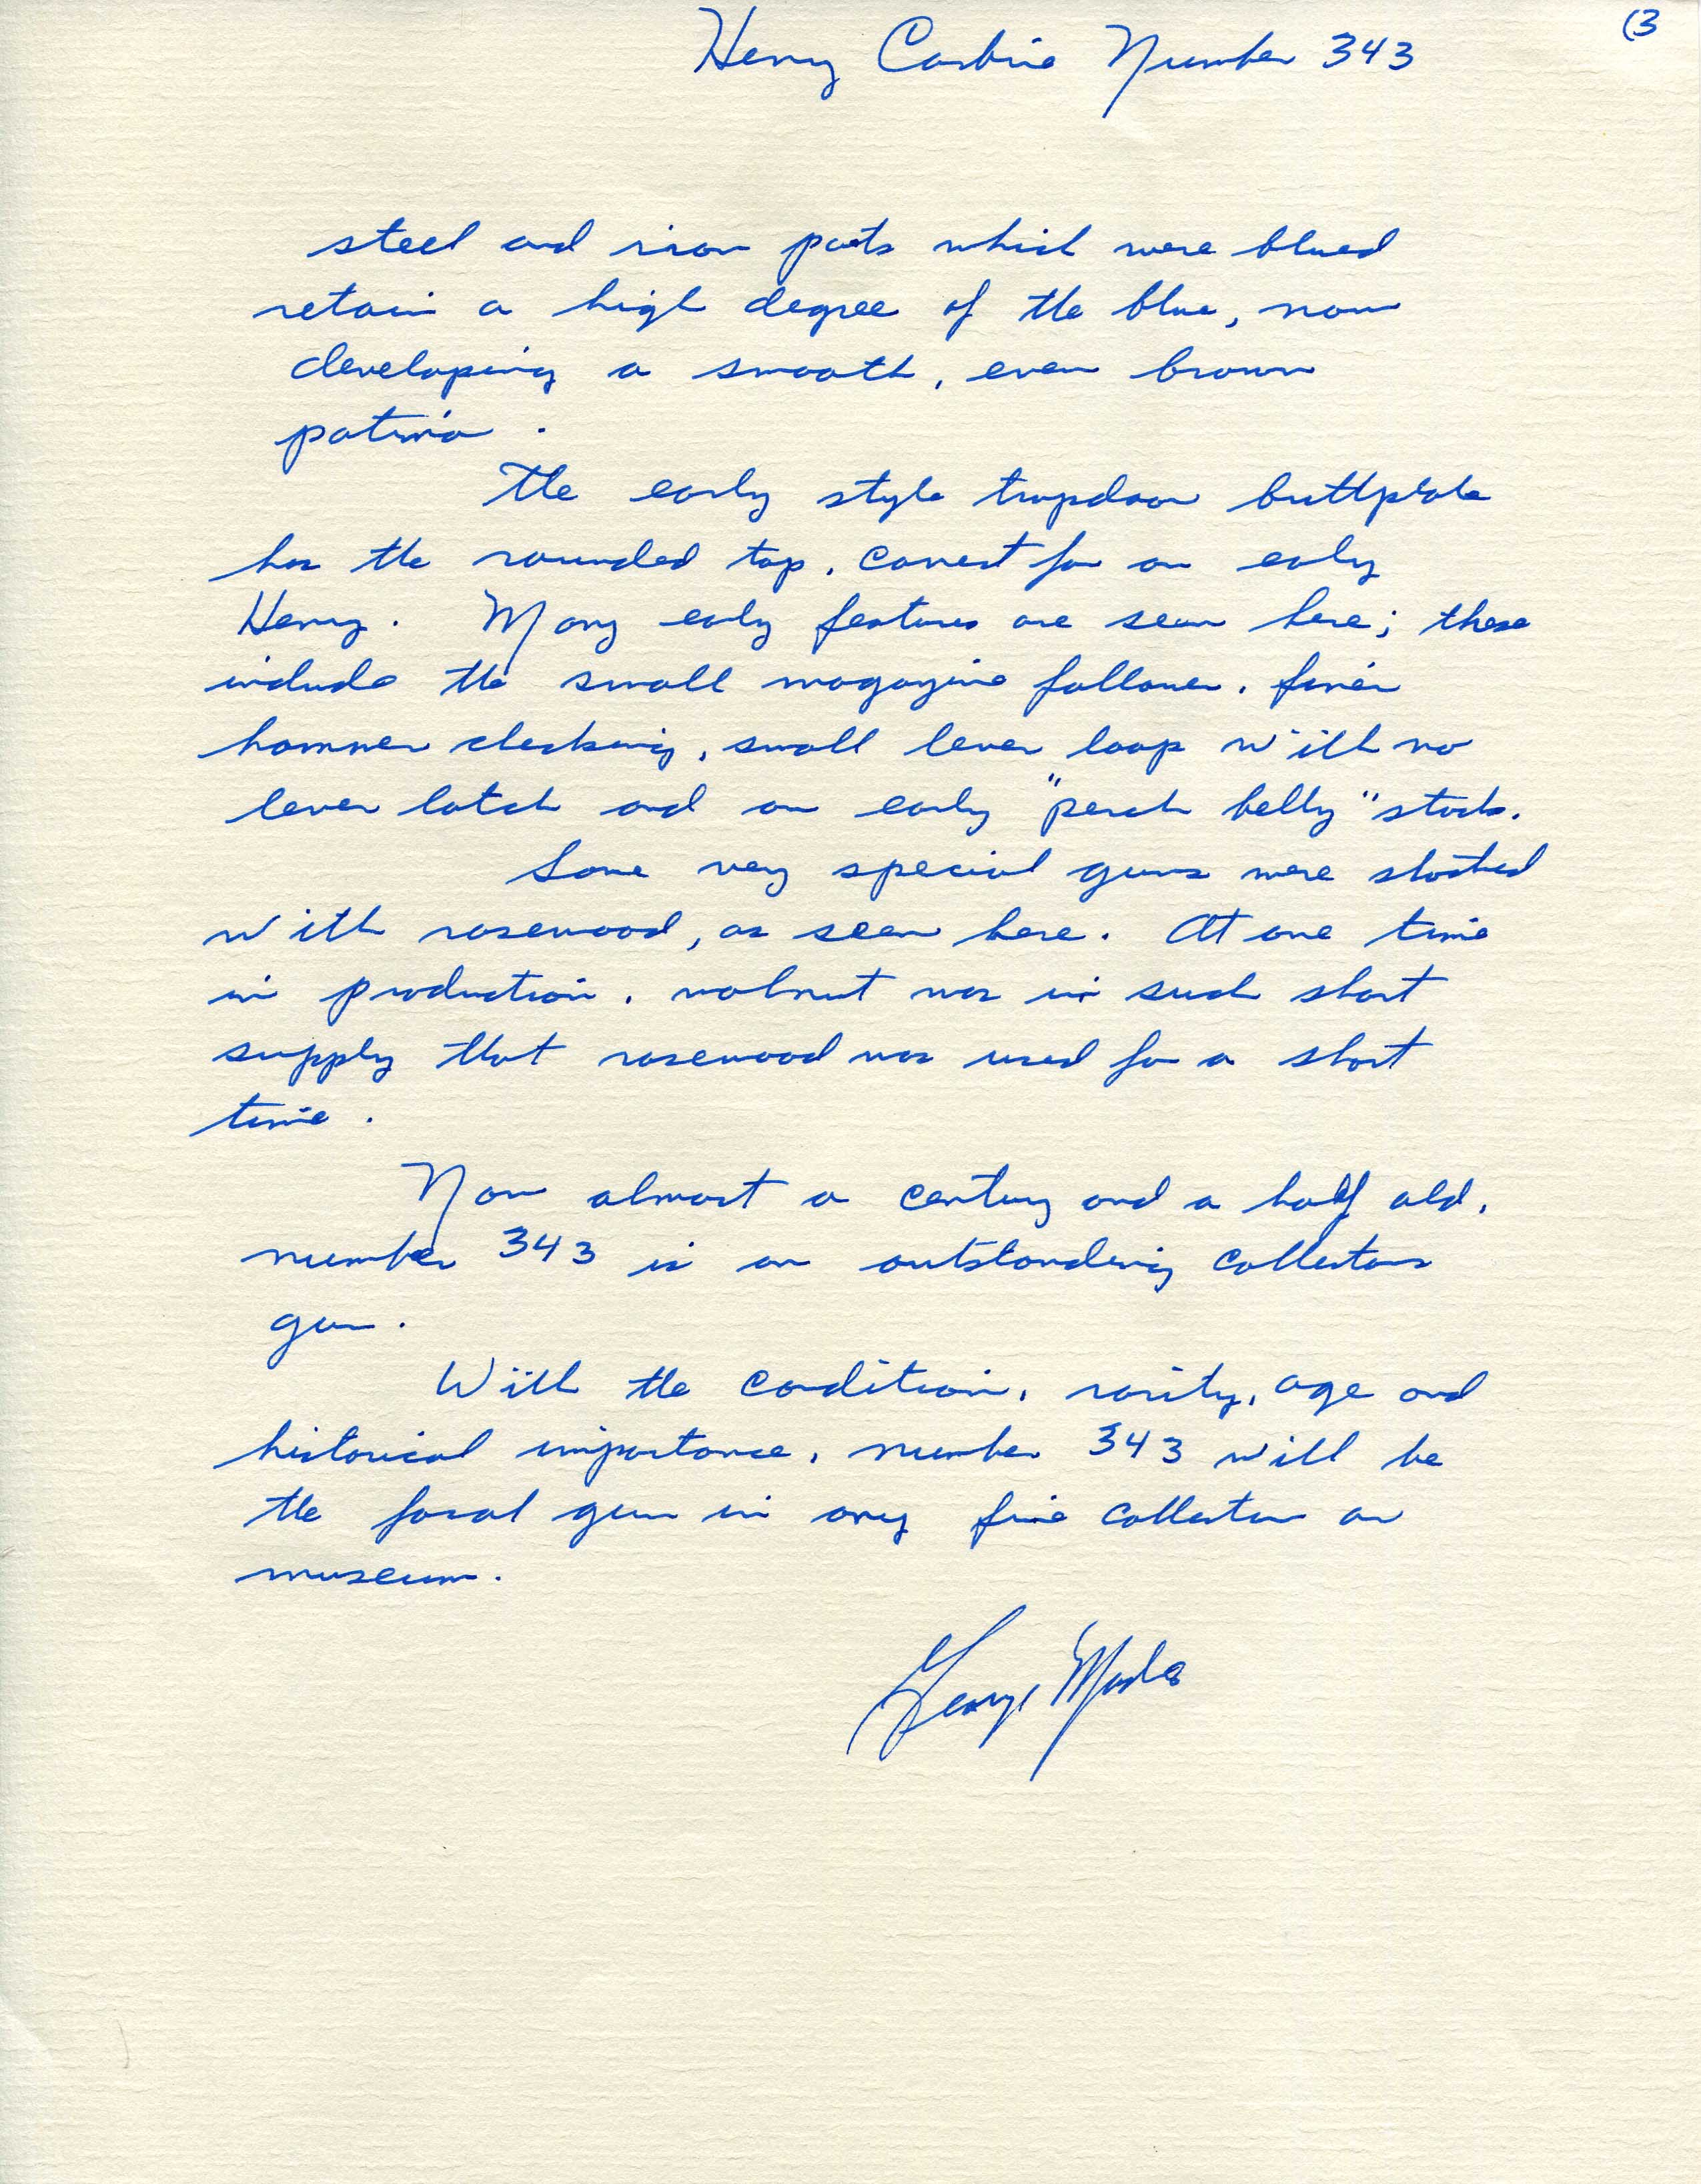 (3
Henry Carbine Number 343
steel and iron parts which were blued
retain a high degree of the blue, now
developing a smooth, even brown
patina.
The early style trapdoor buttplate
has the rounded top, correct for an early
Henry. Many early features are seen here; these
include the small magazine follower, finer
hammer checking, small lever loop with no
lever latch and an early "perch belly" stock.
Some very special guns were stocked
with rosewood, as seen here. At one time
in production, walnut was in such short
supply that rosewood was used for a short
time.
Now almost a century and a half old,
number 343 is an outstanding collectors
gun.
With the condition, rarity, age and
historical importance, number 343 will be
the focal gun in any fine collection or
museum.
George Madis